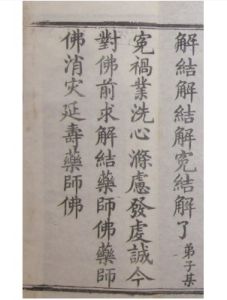 解結解結解冤結解了弟子某
冤禍業洗心滌慮發虔誠今
對佛前求解結藥師佛藥師
佛消灾延壽藥師佛